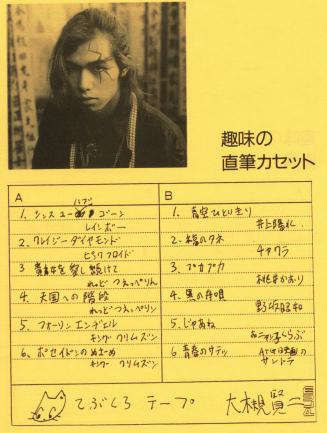 趣味の
直筆カセット
A
B
1. シンス ユー ハブ ゴーン
レインボー
2. クレイジーダイヤモンド
ピンクフロイド
3 貴女を愛し続けて
れっど つぇっぺりん
4. 天国への階段
れっど つぇっぺりん
5. フォーリン エンジェル
キング クリムゾン
6. ポセイドンのめざめ
キング クリムゾン
1. 青空ひとりきり
井上陽水
2. 木綿のタネ
チャクラ
3. プカプカ
桃井かおり
4. 黒の舟唄
野坂昭如
5. じゃあね
おニャン子くらぶ
6 青春のサテツ
サントラ
てぶくろ テープ
大槻賢二